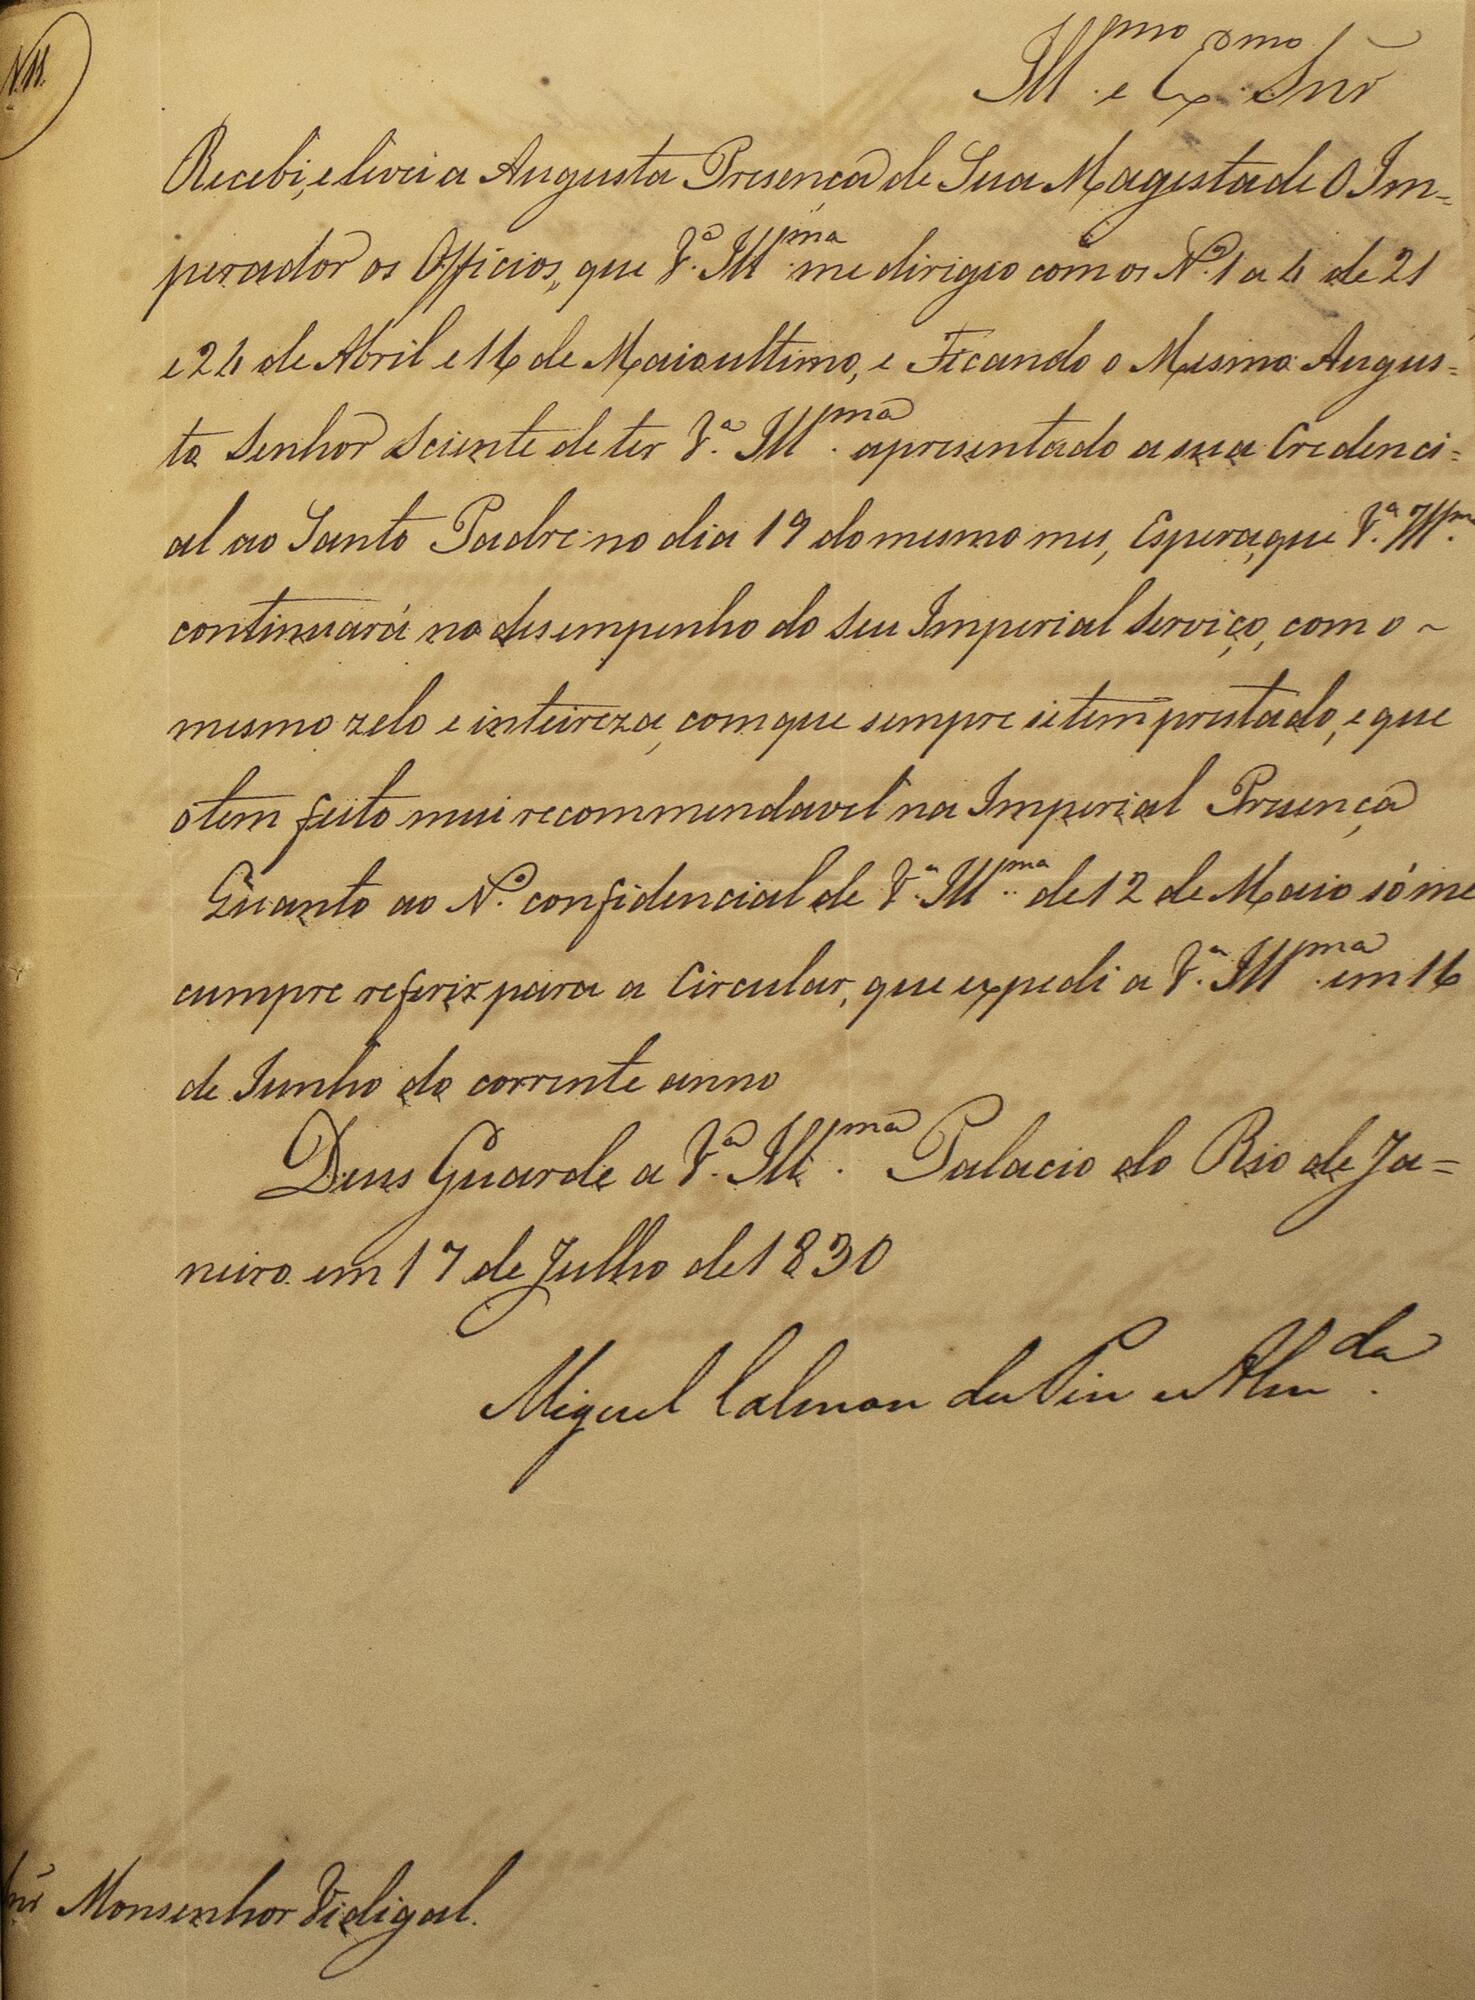 N. 11.
Ill.mo e Ex.mo Snr
Recebi, e levei a Augusta Presença de Sua Magestade O Im-
perador os Officios, que V.ª Ill.ma me dirigio com os N.os 1 a 4 de 21
e 24 de Abril e 16 de Maio ultimo, e Ficando o Mesmo Augus-
to Senhor Sciente de ter V.ª Ill.ma apresentado a sua Credenci-
al ao Santo Padre no dia 19 do mesmo mes, Espera, que V.ª Ill.ma
continuará no desempenho do Seu Imperial Serviço, com o
mesmo zelo e inteireza, com que sempre se tem prestado, e que
o tem feito mui recommendavel na Imperial Presença
Quanto ao N.º confidencial de V.ª Ill.ma de 12 de Maio só me
cumpre referir para a Circular, que expedi a V.ª Ill.ma em 16
de Junho do corrente anno
Deus Guarde a V.ª Ill.ma Palacio do Rio de Ja-
neiro em 17 de Julho de 1830
Miguel Calmon du Pin e Alm.da
Snr Monsenhor Vidigal.